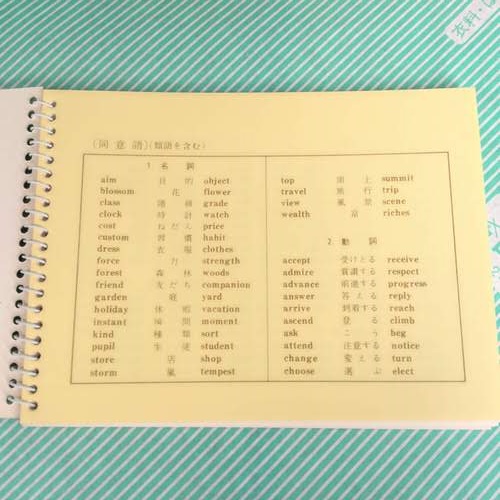 (同意語)(類語を含む)
1 名詞
aim 目的 object
blossom 花 flower
class 階級 grade
clock 時計 watch
cost ねだん price
custom 習慣 habit
dress 衣服 clothes
force 力 strength
forest 森林 woods
friend 友だち companion
garden 庭 yard
holiday 休暇 vacation
instant 瞬間 moment
kind 種類 sort
pupil 生徒 student
store 店 shop
storm 嵐 tempest
top 頂上 summit
travel 旅行 trip
view 風景 scene
wealth 富 riches
2. 動詞
accept 受けとる receive
admire 賞讃する respect
advance 前進する progress
answer 答える reply
arrive 到着する reach
ascend 登る climb
ask こう beg
attend 注意する notice
change 変える turn
choose 選ぶ elect
衣料・